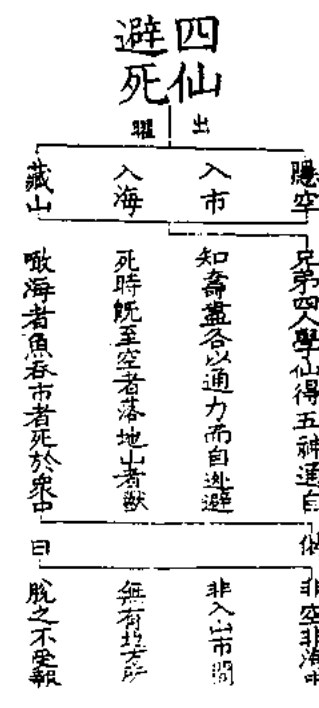 四仙
避死
出曜
隱空
入市
入海
藏山
兄弟四人學仙得五神通自
知壽盡各以通力而自逃避
死時既至空者落地山者獸
噉海者魚吞市者死於眾中
佛
曰
非空非海中
非入山市間
無有地方所
脫之不受報